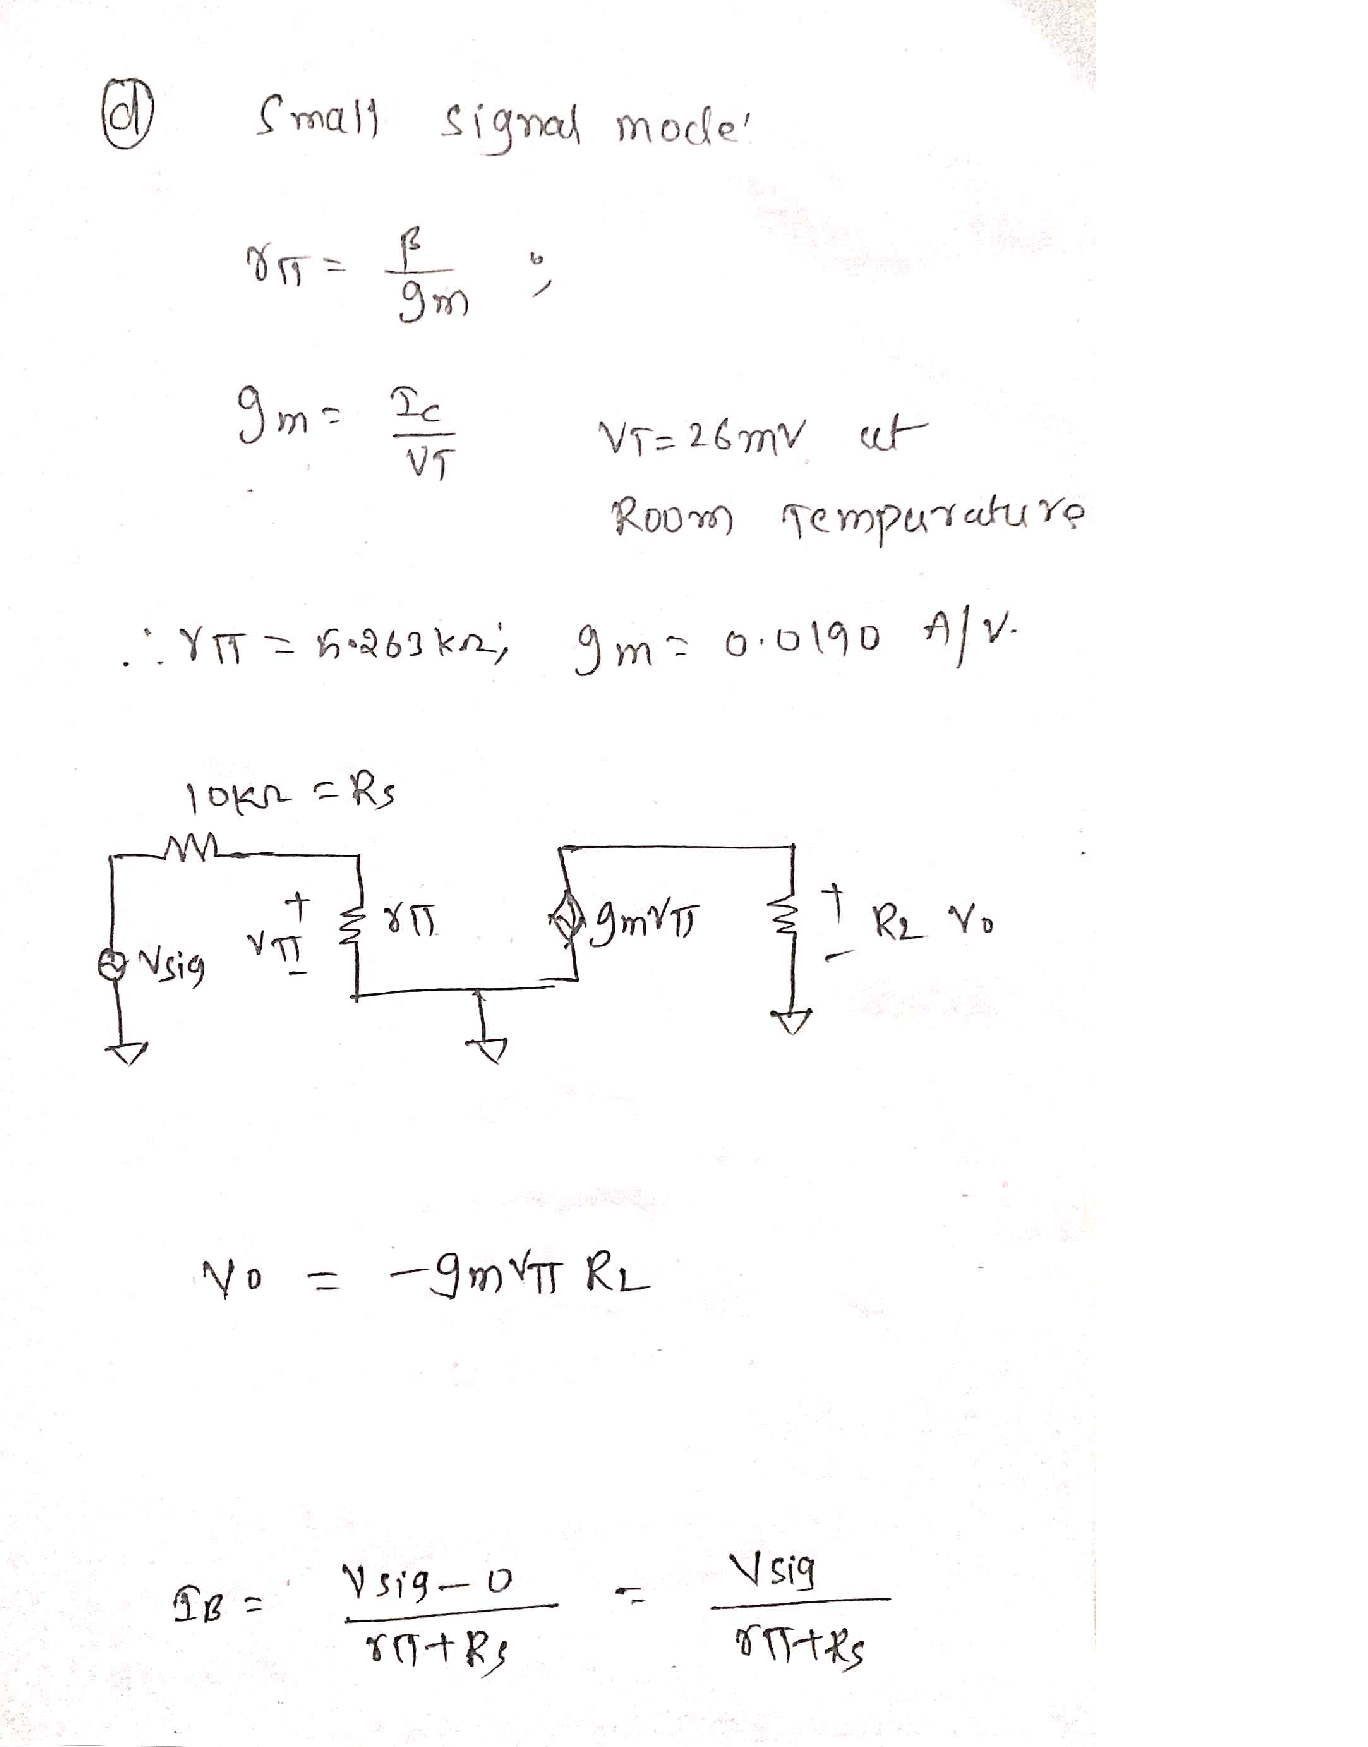 (d) Small signal model
rπ = β / gm ;
gm = IC / VT VT = 26mV at
Room Tempurature
∴ rπ = 5.263 kΩ; gm = 0.0190 A/V.
10kΩ = Rs
+ rπ gmvπ + RL Vo
Vsig vπ
- -
Vo = -gmvπ RL
IB = Vsig - 0 / rπ + Rs = Vsig / rπ + Rs